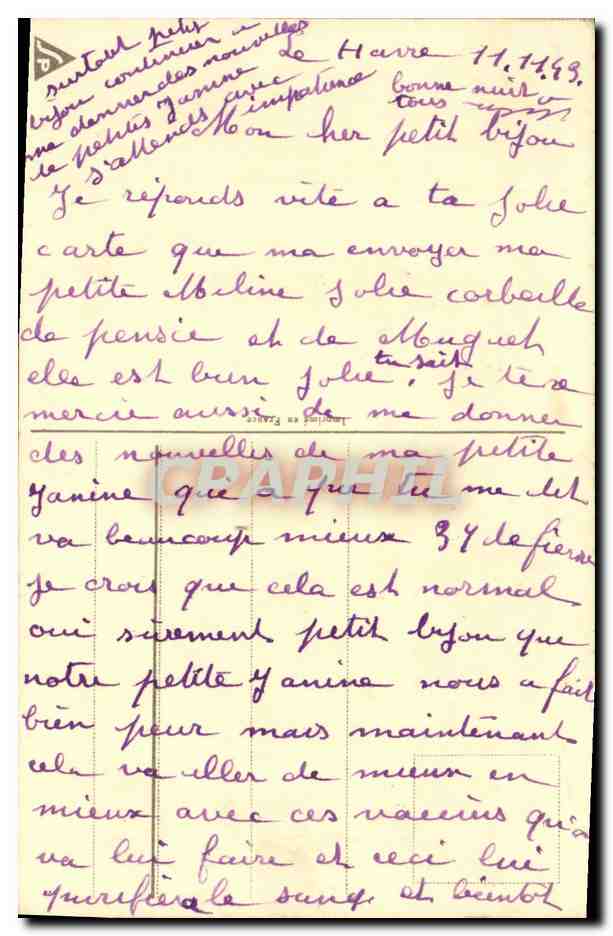 surtout petit
bijou continuer a
me donner des nouvelles
de petites Janine
s'attends avec
impatience
Le Havre 11.11.49.
bonne nuit a
tous
Mon her petit bijou
Je réponds vite a ta jolie
carte que ma envoyer ma
petite Meline jolie corbeille
de pensie et de Muguet
elle est bien jolie, tu sait je te re
mercie aussi de me donner
Imprimé en France
des nouvelles de ma petite
Janine qui a que tu me dit
va beaucoup mieux 37 de fievre
je crois que cela est normal
oui sûrement petit bijou que
notre petite Janine nous a fait
bien peur mais maintenant
cela va aller de mieux en
mieux avec ces vaccins qu'on
va lui faire et ceci lui
purifiera le sang et bientot
CRAPHIL
SP